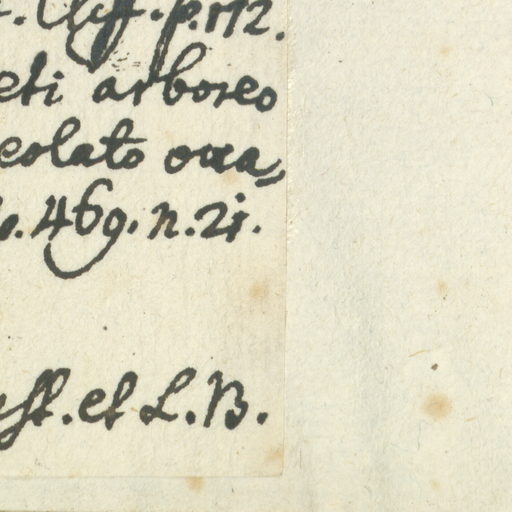 . Cliff. p. 172.
eti arboreo
eolato occa,
. 469. n. 21.
st. et L. B.